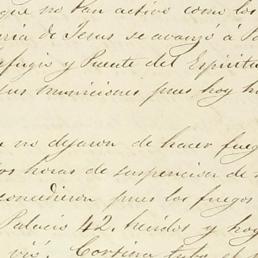 que no tan activo como los
aria de Jesus se avanzó á
efugio y Puente del Espiritu
sus municiones pues hoy
no dejaron de hacer fueg
os horas de suspencion de
concedieron pues los fuegos
Palacio 42, heridos y hoy
vió. Cortina tubo el